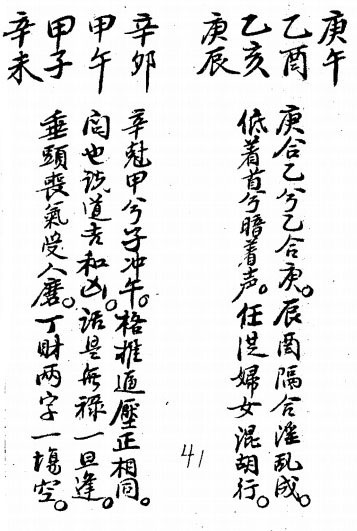 庚午
乙酉
乙亥
庚辰
庚合乙兮乙合庚。辰酉隔合淫乱成。
低着首兮暗着声。任湜婦女混胡行。
辛卯
甲午
甲子
辛未
辛尅甲兮子冲午。格推逼壓正相同。
问也说道吉和凶。话是無禄一旦逢。
垂頭喪氣受人磨。丁財两字一塲空。
41